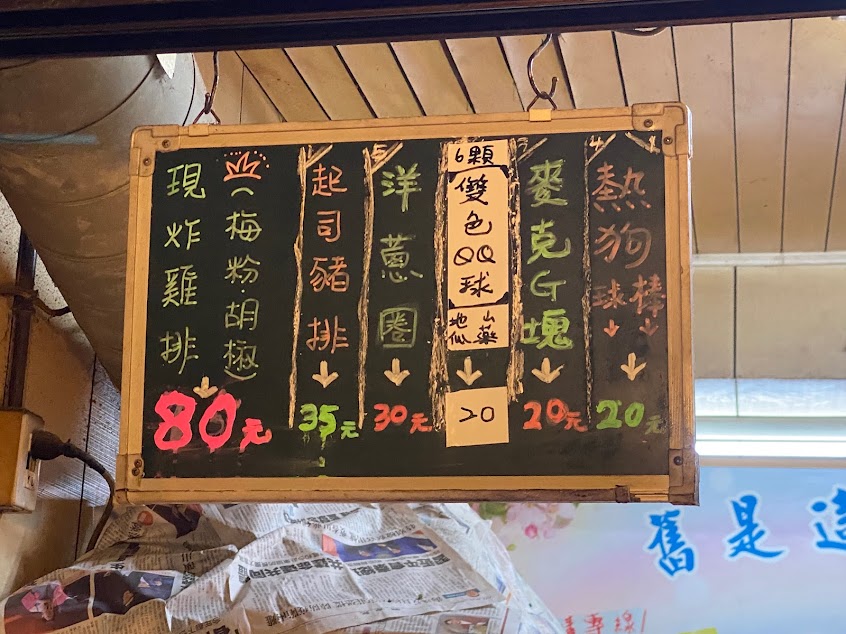 現炸雞排
(梅粉胡椒)
80元
起司豬排
35元
5
洋蔥圈
30元
6顆
雙色QQ球
地瓜
山藥
20
麥克G塊
20元
4
熱狗
球
棒
20元
舊是這